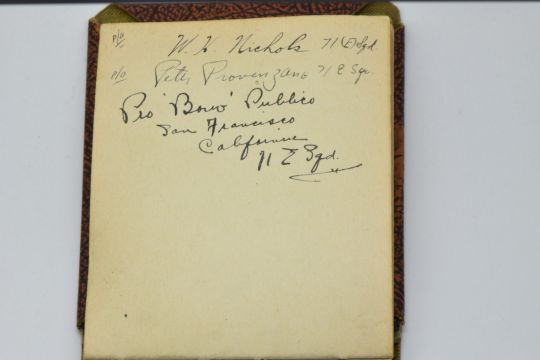 P/O W. K. Nichols 71 (E) Sqd
P/O Peter Provenzano 71 E Sqd.
Pro 'Bono' Publico
San Francisco
California
71 E Sqd.